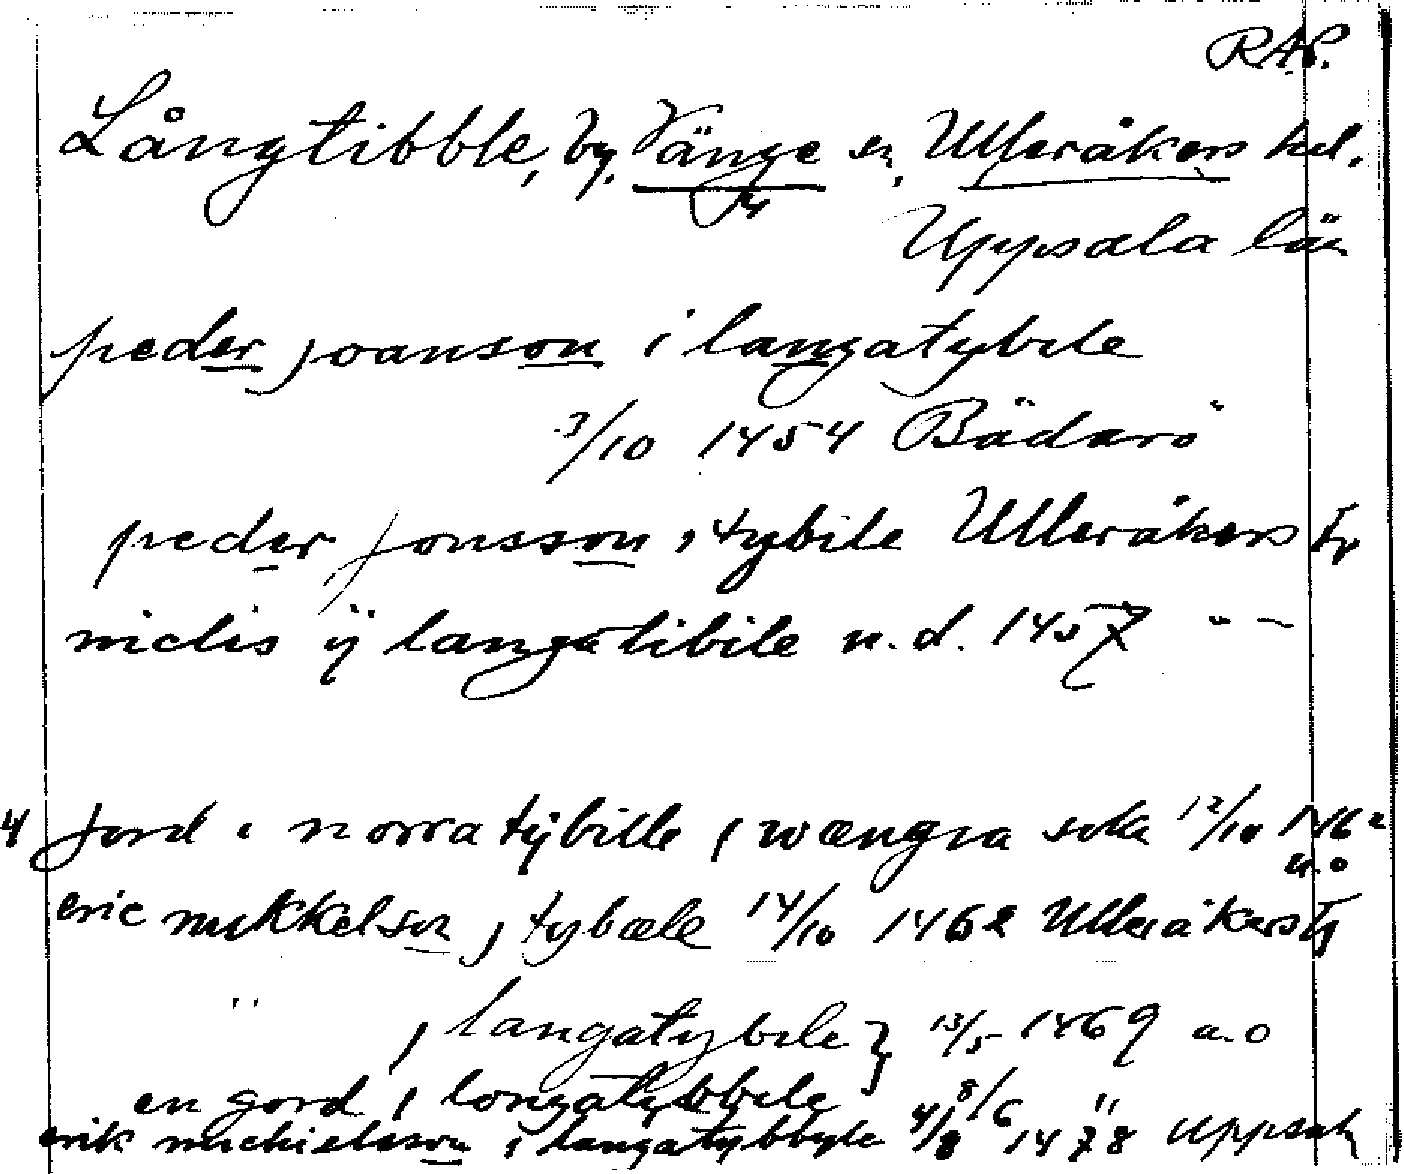 RAP.
Långtibble, by, Vänge sn, Ulleråkers hd.
Uppsala län
peder joanson i langatybile
3/10 1454 Bädarö
peder jonsson i tybile Ulleråkers
niclis ij langatibile u.d. 1457 " —
4 jord i norra tybille i wængra sokn 12/10 1462
u.o
eric mikkelson j tybæle 14/10 1462 Ulleråkers
" j langatybile } 13/5 1469 u.o
en gord i longatybbile 8/6 "
erik michielsson i langatybbyle 4/8 1478 Uppsala